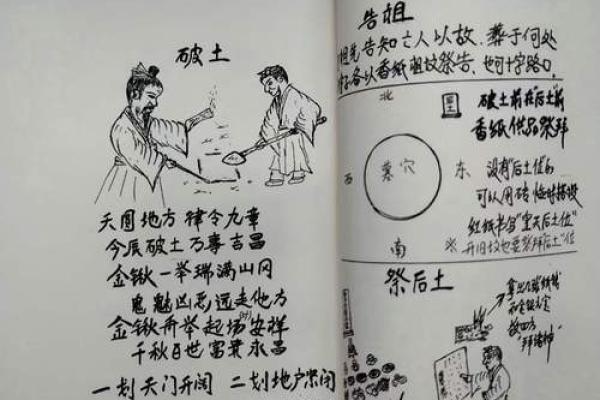 破土
天圆地方 律令九章
今辰破土 万事吉昌
金锹一举瑞满山冈
鬼魅凶恶远走他方
金锹再举起场安祥
千秋百世富贵永昌
一划天门开阔 二划地户紧闭
告祖
祖先告知亡人以故、葬于何处
各以香纸祖坟祭告、也可十字路口
北
西
墓穴
东
南
后土
破土前在"后土"前
香纸供品祭拜
没有"后土位"的
可以用砖临时摆设
红纸书写"皇天后土位"
※ 开旧坟也要祭拜后土"位
祭后土
拿出几张纸钱
放四方
"拜诸神"